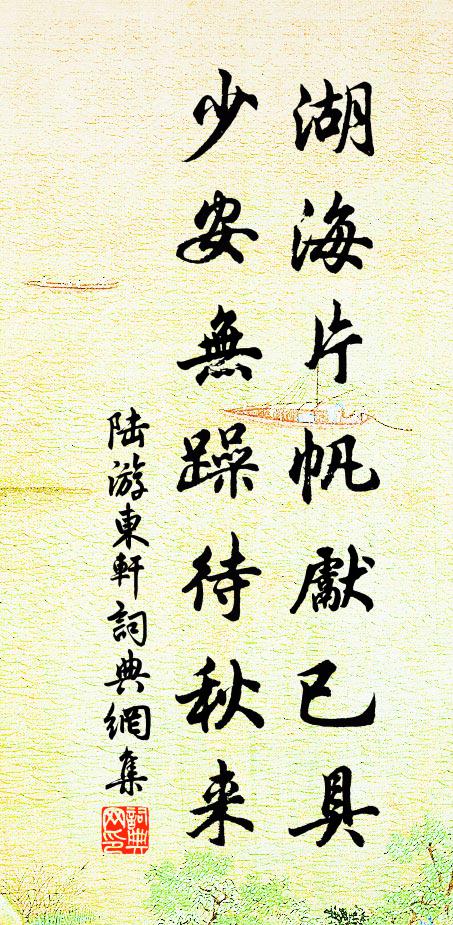 湖海片帆獻已具
少安無躁待秋来
陆游東軒詞典網集
詞典网印